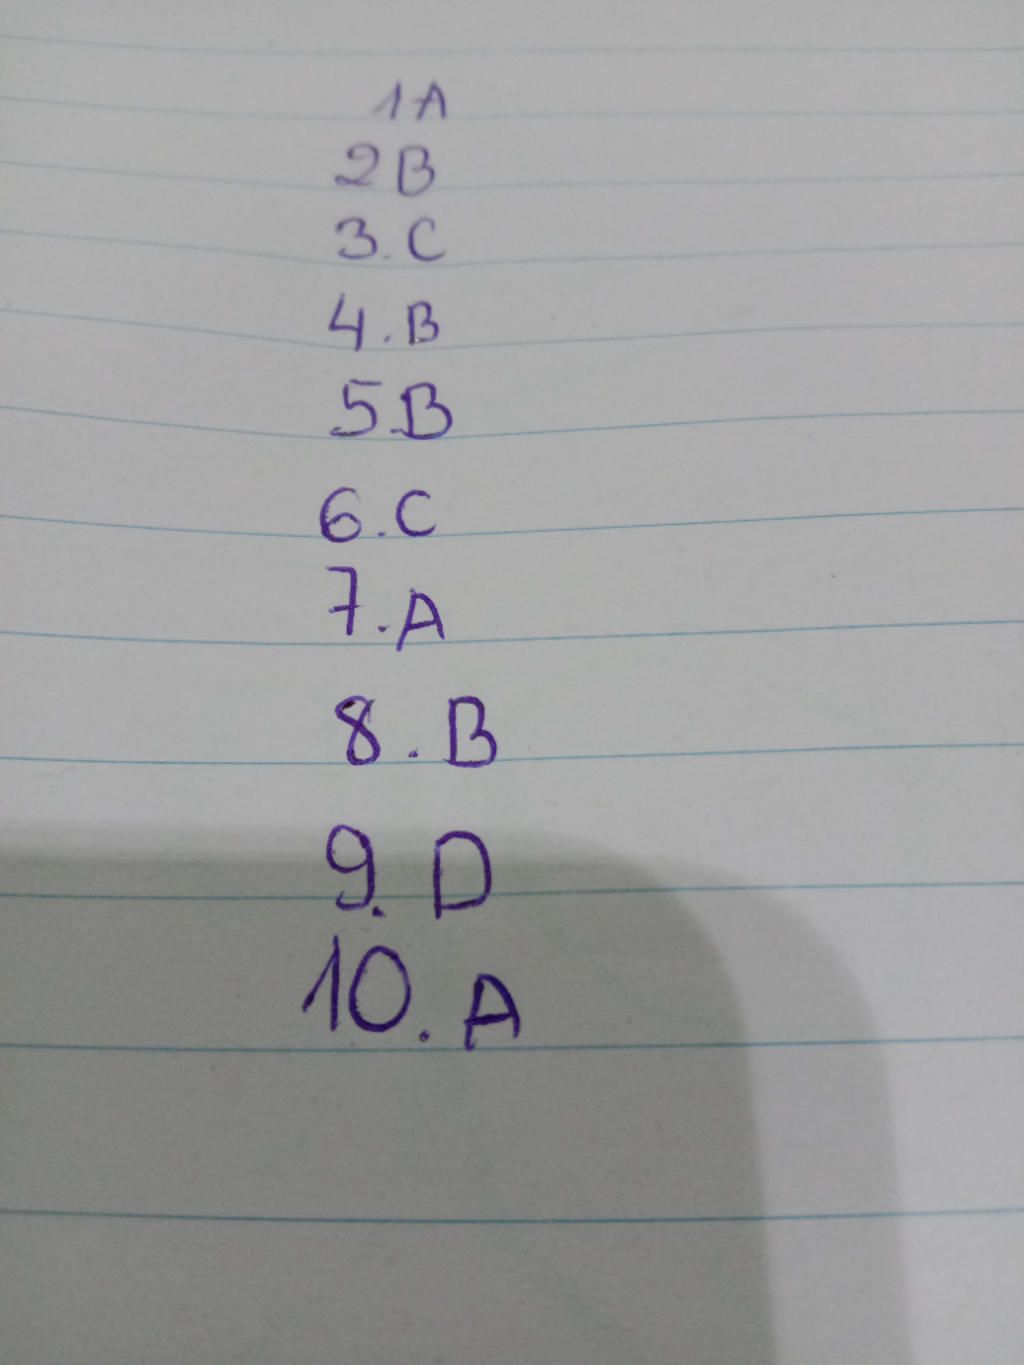 1 A
2 B
3. C
4. B
5. B
6. C
7. A
8. B
9. D
10. A